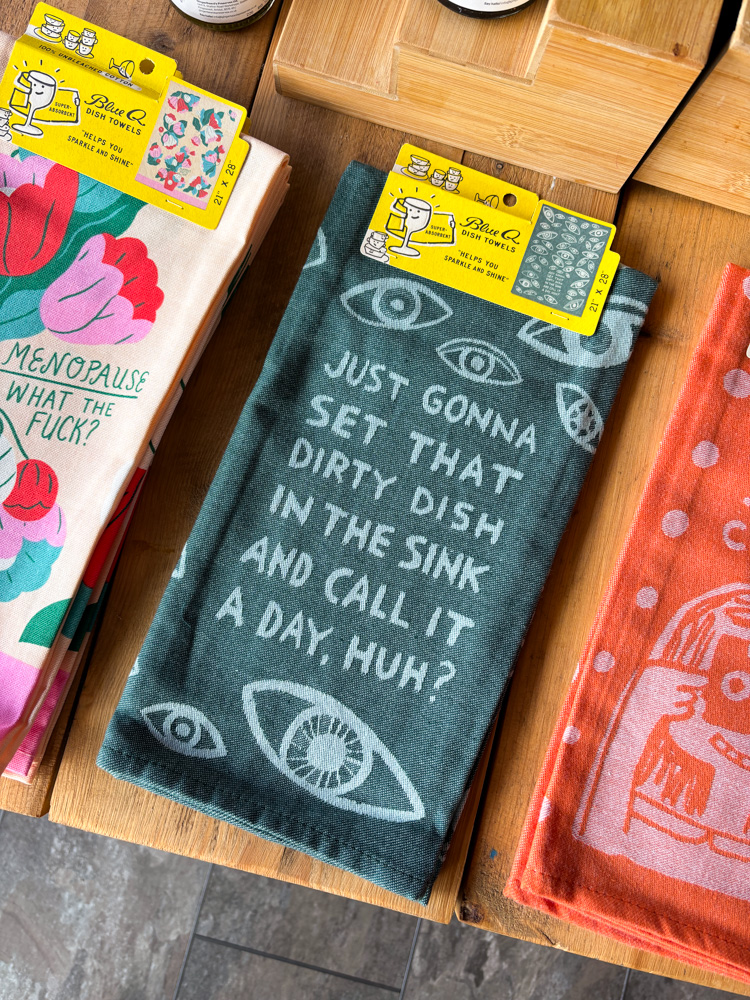 100% UNBLEACHED COTTON
SUPER-
ABSORBENT!
Blue Q
DISH TOWELS
"HELPS YOU
SPARKLE AND SHINE"
21" X 28"
MENOPAUSE
WHAT THE
FUCK?
SUPER-
ABSORBENT!
Blue Q
DISH TOWELS
"HELPS YOU
SPARKLE AND SHINE"
21" X 28"
JUST GONNA
SET THAT
DIRTY DISH
IN THE SINK
AND CALL IT
A DAY, HUH?